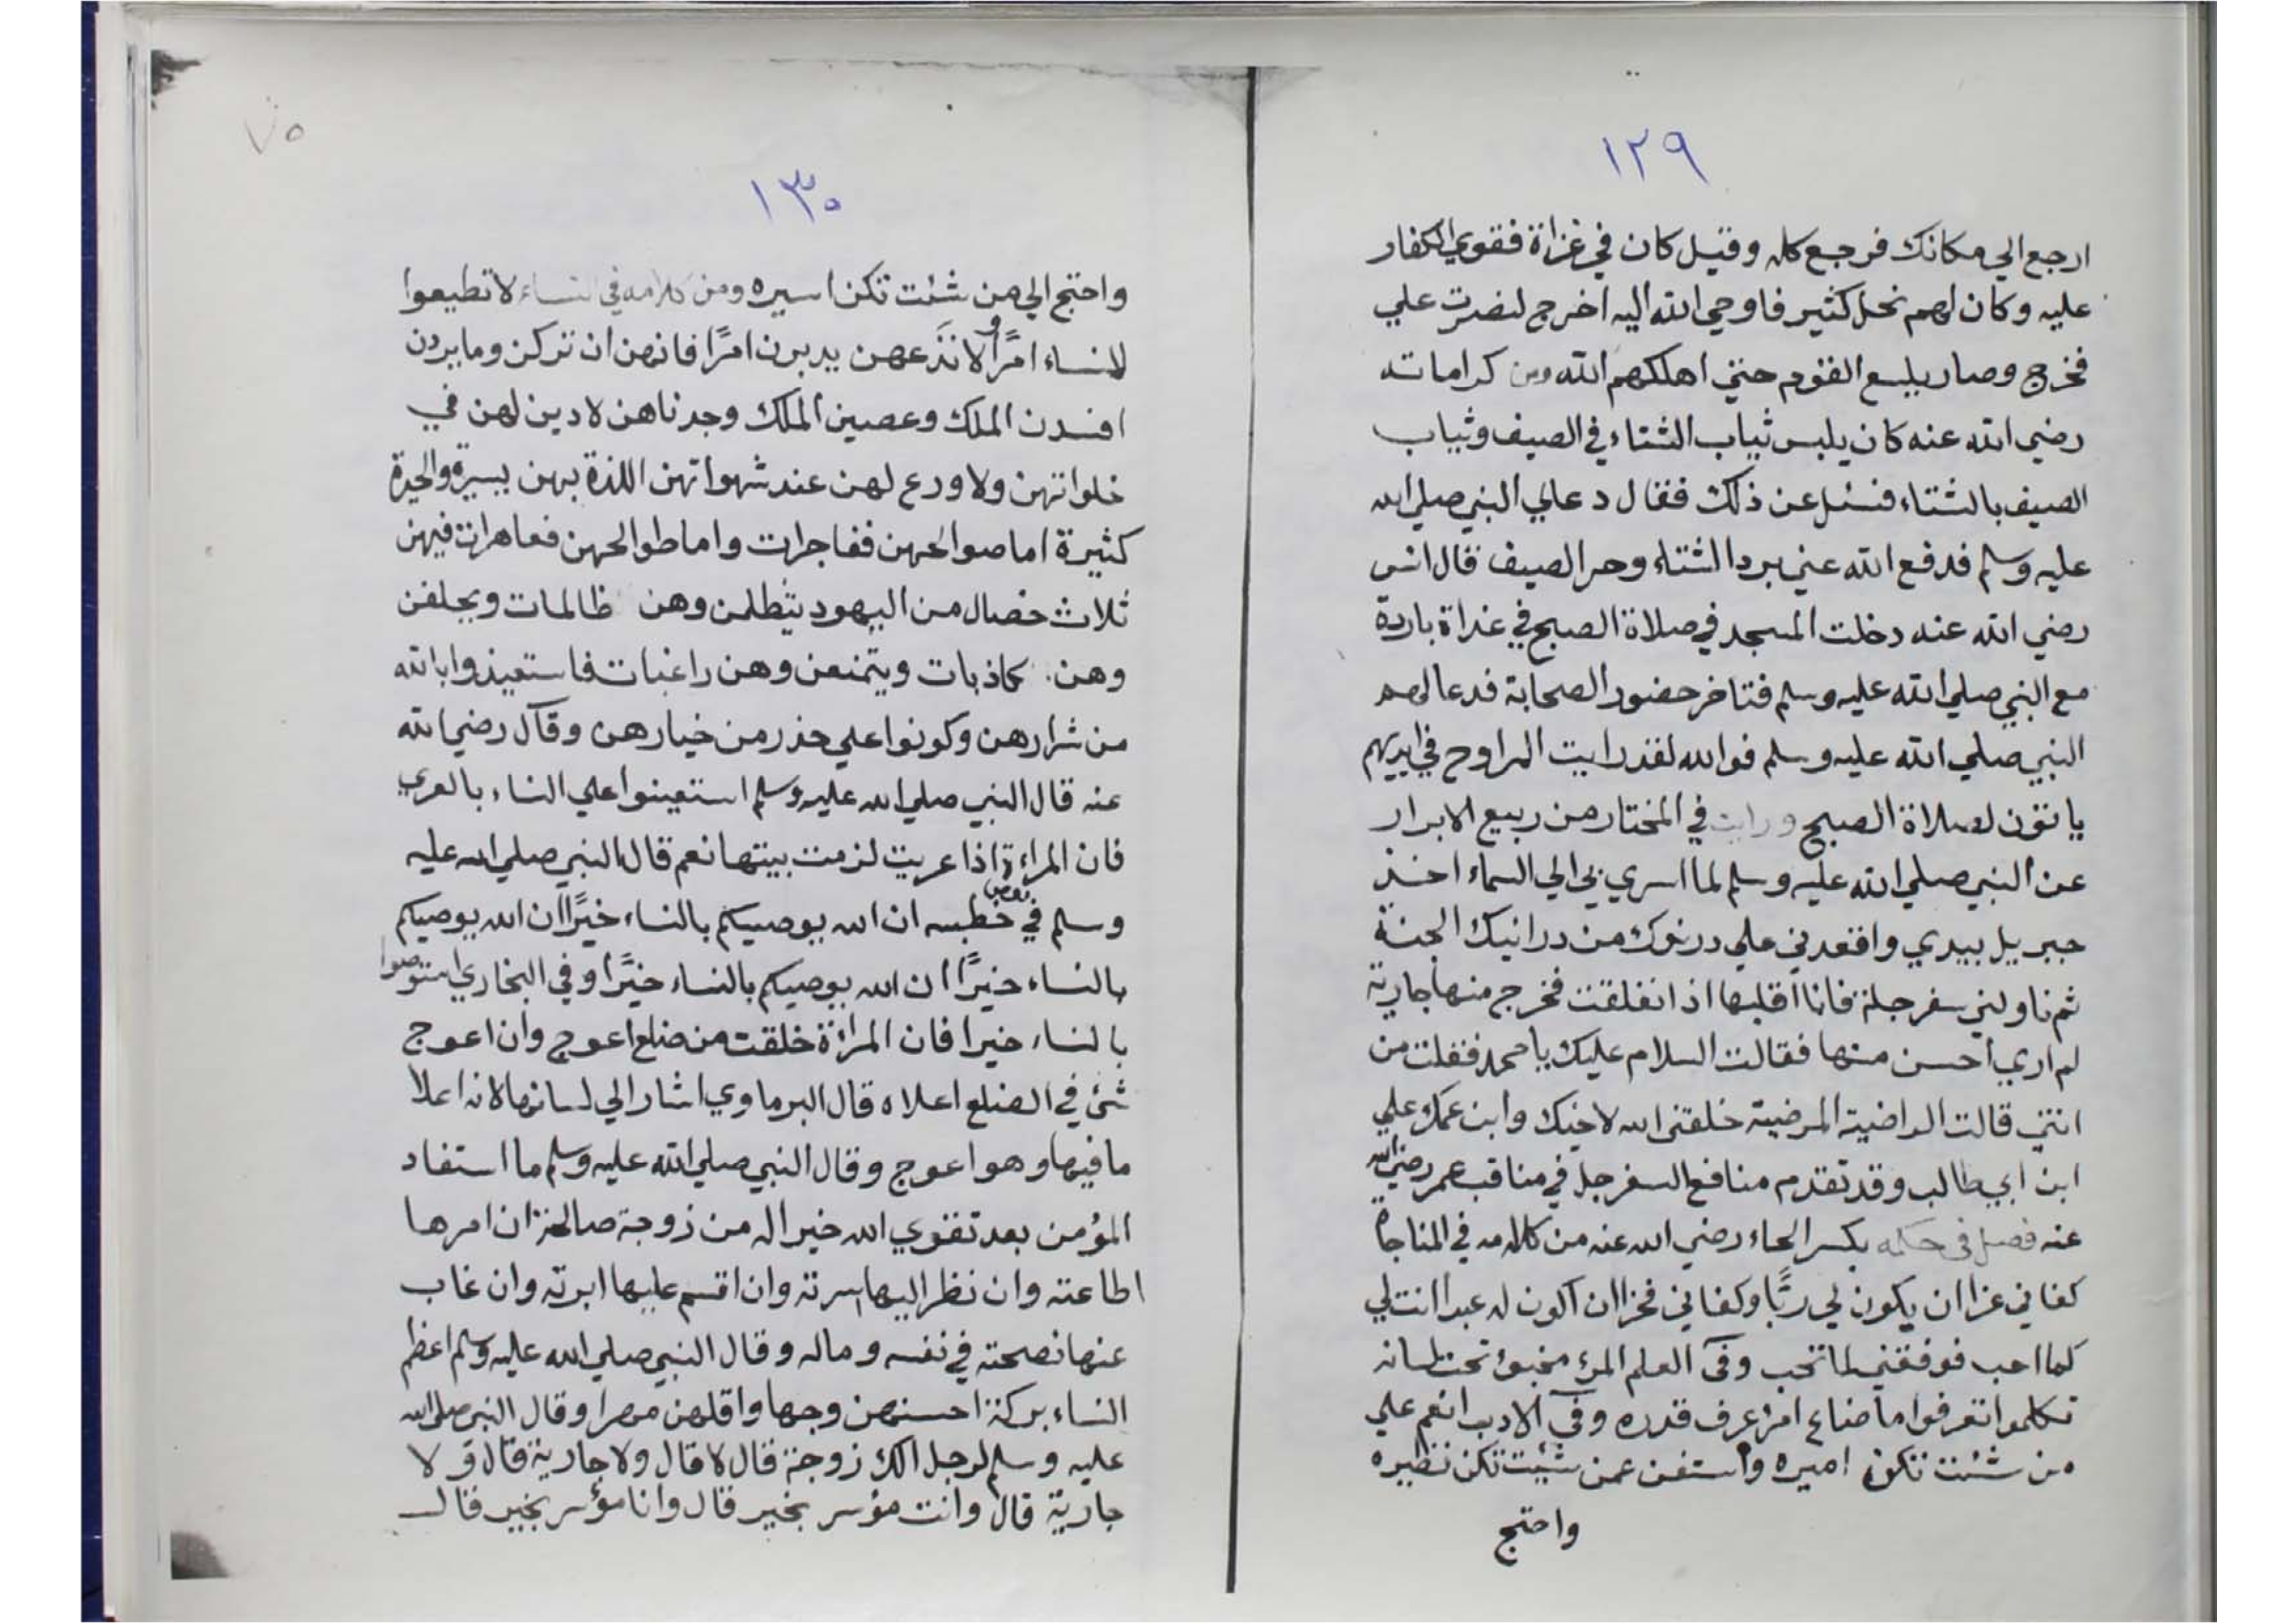 ١٢٩
ارجع الي مكانك فرجع كله وقيل كان في غزاة فقوي الكفار
عليه وكان لهم نحل كثير فاوحي الله اليه اخرج لنصرت علي
فخرج وصار يلسع القوم حتي اهلكهم الله ومن كراماته
رضي الله عنه كان يلبس ثياب الشتاء في الصيف وثياب
الصيف بالشتاء فسئل عن ذلك فقال دعالي النبي صلي الله
عليه وسلم فدفع الله عني برد الشتاء وحر الصيف قال انس
رضي الله عنه دخلت المسجد في صلاة الصبح في غداة باردة
مع النبي صلي الله عليه وسلم فتاخر حضور الصحابة فدعا لهم
النبي صلي الله عليه وسلم فوالله لقد رايت المراوح في ايديهم
ياتون لصلاة الصبح ورايت في المختار من ربيع الابرار
عن النبي صلي الله عليه وسلم لما اسري بي الي السماء اخذ
جبريل بيدي واقعدني علي درنوك من درانيك الجنة
ثم ناولني سفرجلة فانا اقلبها اذ انفلقت فخرج منها جارية
لم اري احسن منها فقالت السلام عليك يا محمد فقلت من
انتي قالت الراضية المرضية خلقني الله لاخيك وابن عمك علي
ابن ابي طالب وقد تقدم منافع السفرجل في مناقب عمر رضي الله
عنه فصل في حكمه بكسر الحاء رضي الله عنه من كلامه في المناجاة
كفاني عزا ان يكون لي ربًّا وكفاني فخرا ان اكون له عبدا انت لي
كما احب فوفقني لما تحب وفي العلم المرؤ مخبوؤ تحت لسانه
تكلموا تعرفوا ما ضاع امرؤ عرف قدره وفي الادب انعم علي
من شئت تكون اميره واستغن عمن شيئت تكن نظيره
واحتج
٧٥
١٣٠
واحتج الي من شئت تكن اسيره ومن كلامه في النساء لا تطيعوا
للنساء امرًا ولا تدعهن يدبرن امرًا فانهن ان تركن وما يردن
افسدن الملك وعصين الملك وجدناهن لا دين لهن في
خلواتهن ولا ورع لهن عند شهواتهن اللذة بهن يسيرة والحيرة
كثيرة اما صوالحهن ففاجرات واما طوالحهن فعاهرات فيهن
ثلاث خصال من اليهود يتظلمن وهن ظالمات ويحلفن
وهن كاذبات ويتمنعن وهن راغبات فاستعيذوا بالله
من شرارهن وكونوا علي حذر من خيارهن وقال رضي الله
عنه قال النبي صلي الله عليه وسلم استعينوا علي النساء بالعري
فان المراءة اذا عريت لزمت بيتها نعم قال النبي صلي الله عليه
وسلم في بعض خطبه ان الله يوصيكم بالنساء خيرًا ان الله يوصيكم
بالنساء خيرًا ان الله يوصيكم بالنساء خيرًا وفي البخاري استوصوا
بالنساء خيرا فان المراءة خلقت من ضلع اعوج وان اعوج
شئ في الضلع اعلاه قال البرماوي اشار الي لسانها لانه اعلا
ما فيها وهو اعوج وقال النبي صلي الله عليه وسلم ما استفاد
المؤمن بعد تقوي الله خيرا له من زوجة صالحة ان امرها
اطاعته وان نظر اليها سرته وان اقسم عليها ابرته وان غاب
عنها نصحته في نفسه وماله وقال النبي صلي الله عليه وسلم اعظم
النساء بركة احسنهن وجها واقلهن مهرا وقال النبي صلي الله
عليه وسلم لرجل الك زوجة قال لا قال ولا جارية قال ولا
جارية قال وانت مؤسر بخير قال وانا مؤسر بخير قال